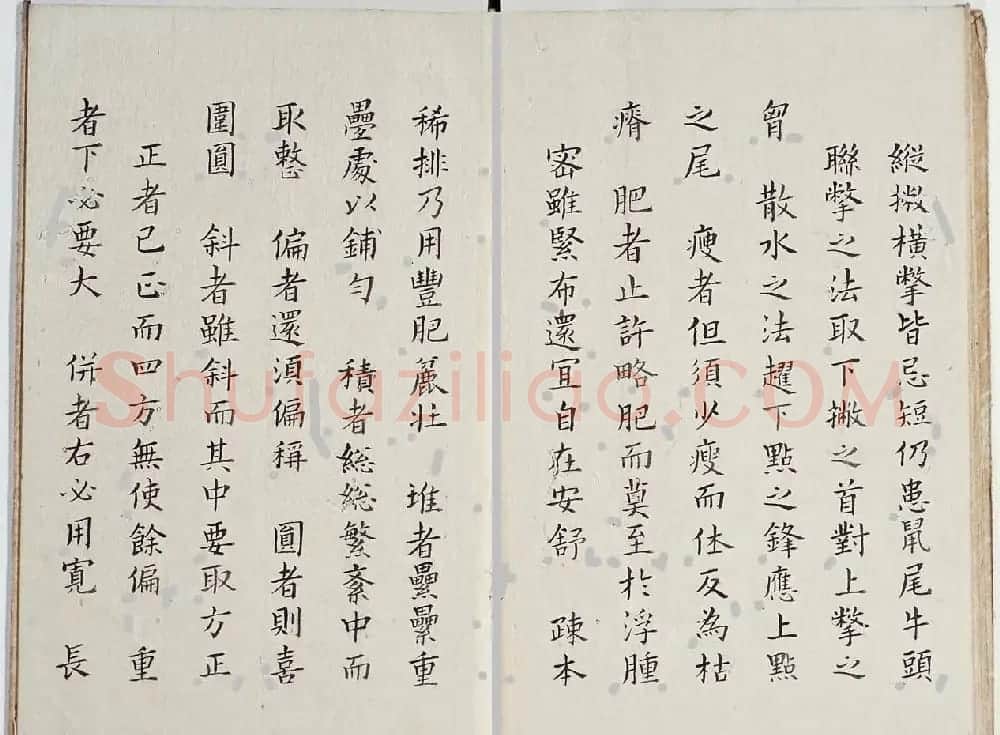 縱撇橫撆皆忌短仍患鼠尾牛頭
聯撆之法取下撇之首對上撆之
胷 散水之法趯下點之鋒應上點
之尾 瘦者但須少瘦而休反為枯
瘠 肥者止許略肥而莫至於浮腫
密雖緊布還宜自在安舒 疎本
稀排乃用豐肥麤壯 堆者壘壘重
疊處以鋪勻 積者緫緫繁紊中而
取整 偏者還湏偏稱 圓者則喜
圍圓 斜者雖斜而其中要取方正
正者已正而四方無使餘偏 重
者下必要大 併者右必用寬 長
Shufaziliao.COM